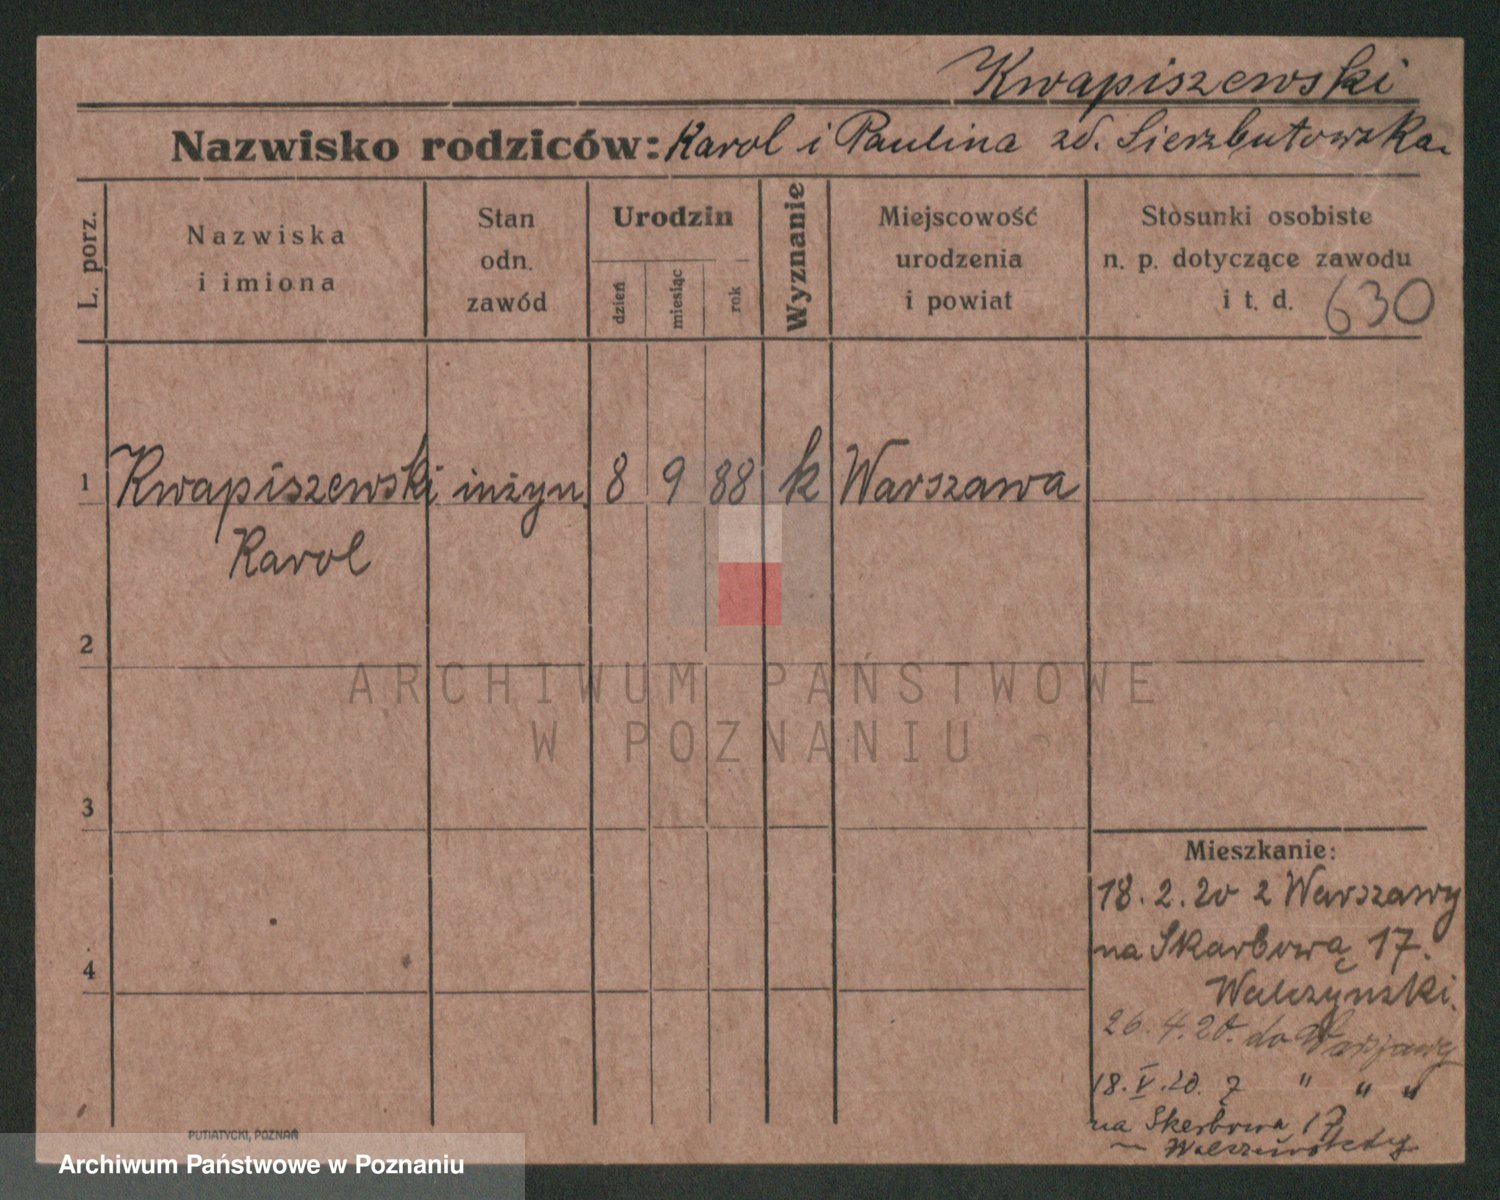 Kwapiszewski
Nazwisko rodziców: Karol i Paulina zd. Sierzbutowska
L. porz.
Nazwiska
i imiona
Stan
odn.
zawód
Urodzin
dzień
miesiąc
rok
Wyznanie
Miejscowość
urodzenia
i powiat
Stosunki osobiste
n. p. dotyczące zawodu
i t. d. 630
1 Kwapiszewski inżyn. 8 9 88 k Warszawa
Karol
2
ARCHIWUM PAŃSTWOWE
W POZNANIU
3
Mieszkanie:
18.2.20 z Warszawy
na Skarbową 17.
4
Walczyński.
26.4.20. do Warszawy
18.V.20. z " " "
na Skarbową 17
PUTIATYCKI, POZNAŃ
Archiwum Państwowe w Poznaniu